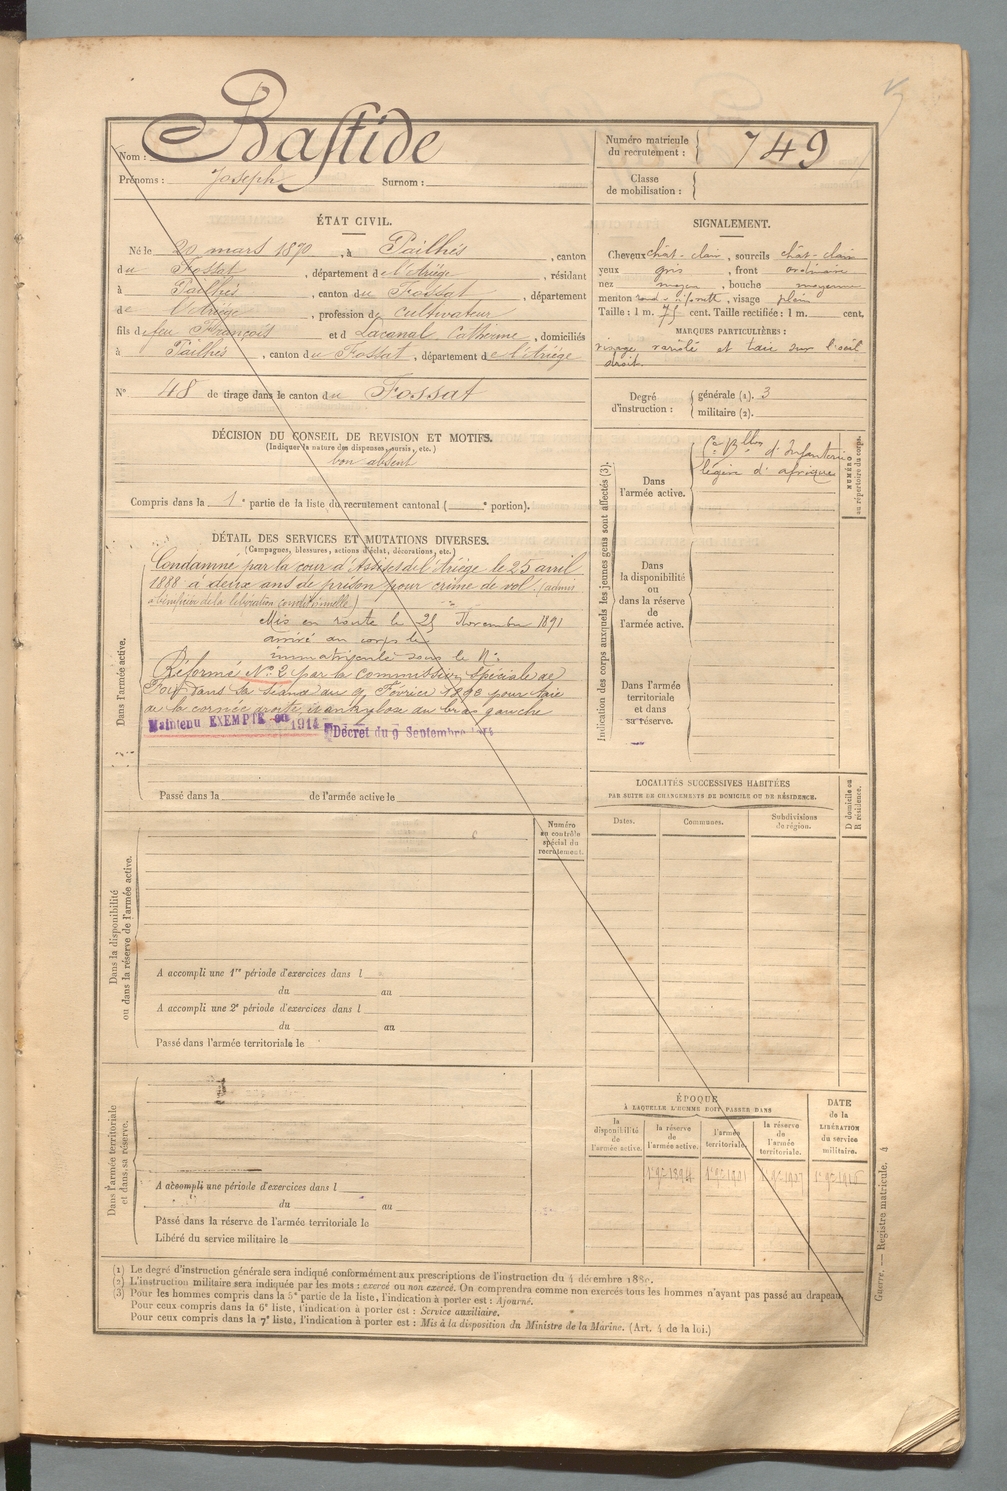 Nom : Bastide
Prénoms : Joseph Surnom :
Numéro matricule du recrutement : 749
Classe de mobilisation :
ÉTAT CIVIL.
Né le 20 mars 1870, à Pailhès, canton
du Fossat, département de l'Ariège, résidant
à Pailhès, canton du Fossat, département
de l'Ariège, profession de cultivateur
fils de feu François et d Lacanal Catherine, domiciliés
à Pailhès, canton du Fossat, département de l'Ariège
N° 48 de tirage dans le canton du Fossat
SIGNALEMENT.
Cheveux chât-clair, sourcils chât-clair
yeux gris, front ordinaire
nez moyen, bouche moyenne
menton rond à fossette, visage plein
Taille : 1 m. 75 cent. Taille rectifiée : 1 m. cent.
MARQUES PARTICULIÈRES :
visage variolé et taie sur l'œil
droit.
Degré d'instruction : générale (1). 3
militaire (2).
DÉCISION DU CONSEIL DE REVISION ET MOTIFS.
(Indiquer la nature des dispenses, sursis, etc.)
bon absent
Compris dans la 1e partie de la liste du recrutement cantonal ( e portion).
DÉTAIL DES SERVICES ET MUTATIONS DIVERSES.
(Campagnes, blessures, actions d'éclat, décorations, etc.)
Dans l'armée active.
Condamné par la cour d'Assises de l'Ariège le 25 avril
1888 à deux ans de prison pour crime de vol. (admis
à bénéficier de la libération conditionnelle)
Mis en route le 25 Novembre 1891
arrivé au corps le
immatriculé sous le N°
Réformé N° 2 par la commission spéciale de
Foix dans sa séance du 9 Février 1893 pour taie
de la cornée droite et ankylose du bras gauche
Maintenu EXEMPTÉ en 1914 Décret du 9 Septembre 1914
Passé dans la de l'armée active le
Indication des corps auxquels les jeunes gens sont affectés (3).
NUMÉRO au répertoire du corps.
Dans l'armée active.
Cie Blles d'Infanterie
légère d'afrique
Dans la disponibilité ou dans la réserve de l'armée active.
Dans l'armée territoriale et dans sa réserve.
LOCALITÉS SUCCESSIVES HABITÉES
PAR SUITE DE CHANGEMENTS DE DOMICILE OU DE RÉSIDENCE.
Dates. Communes. Subdivisions de région. D domicile ou R résidence.
Numéro au contrôle spécial du recrutement.
Dans la disponibilité ou dans la réserve de l'armée active.
A accompli une 1re période d'exercices dans l
du au
A accompli une 2e période d'exercices dans l
du au
Passé dans l'armée territoriale le
Dans l'armée territoriale et dans sa réserve.
A accompli une période d'exercices dans l
du au
Passé dans la réserve de l'armée territoriale le
Libéré du service militaire le
ÉPOQUE
À LAQUELLE L'HOMME DOIT PASSER DANS
la disponibilité de l'armée active. la réserve de l'armée active. l'armée territoriale. la réserve de l'armée territoriale. DATE de la LIBÉRATION du service militaire.
(1) Le degré d'instruction générale sera indiqué conformément aux prescriptions de l'instruction du 4 décembre 1889.
(2) L'instruction militaire sera indiquée par les mots : exercé ou non exercé. On comprendra comme non exercés tous les hommes n'ayant pas passé au drapeau.
(3) Pour les hommes compris dans la 5e partie de la liste, l'indication à porter est : Ajourné.
Pour ceux compris dans la 6e liste, l'indication à porter est : Service auxiliaire.
Pour ceux compris dans la 7e liste, l'indication à porter est : Mis à la disposition du Ministre de la Marine. (Art. 4 de la loi.)
Guerre. — Registre matricule. 4